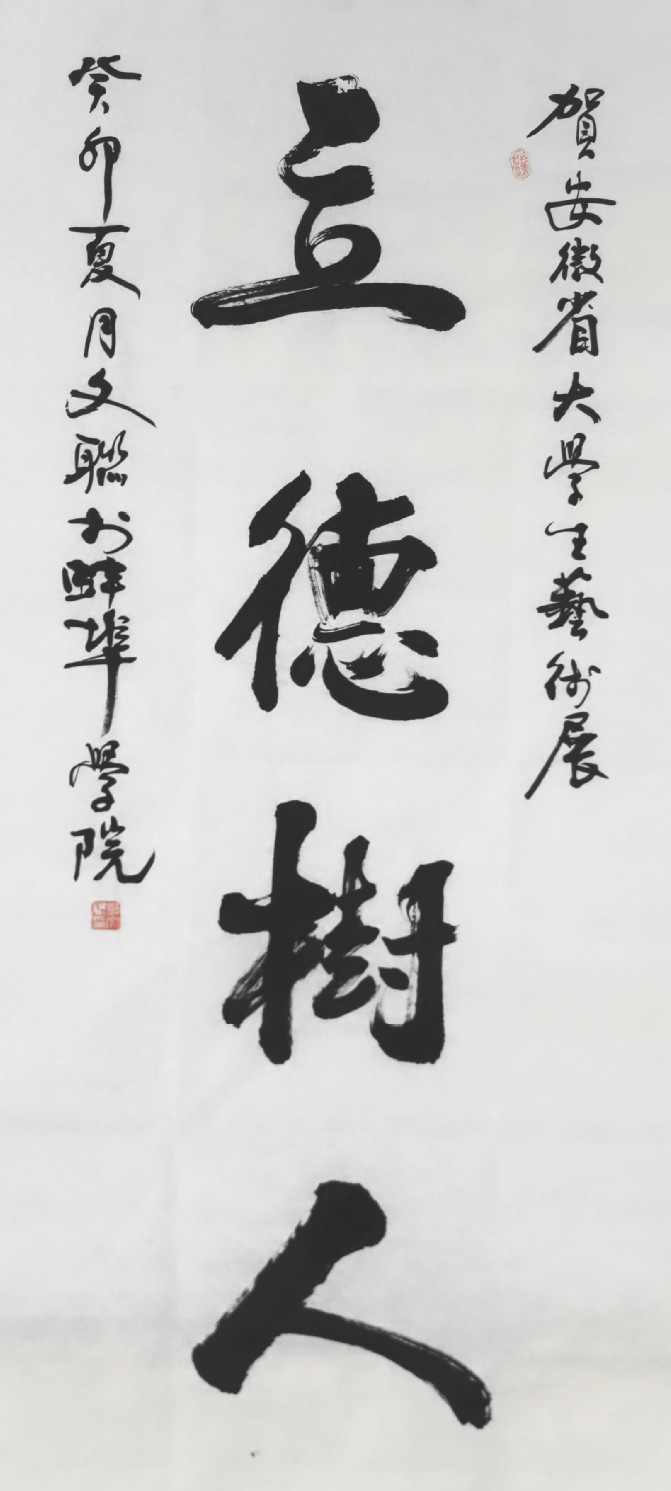 賀安徽省大學生藝術展
立德樹人
癸卯夏月文聯於蚌埠學院